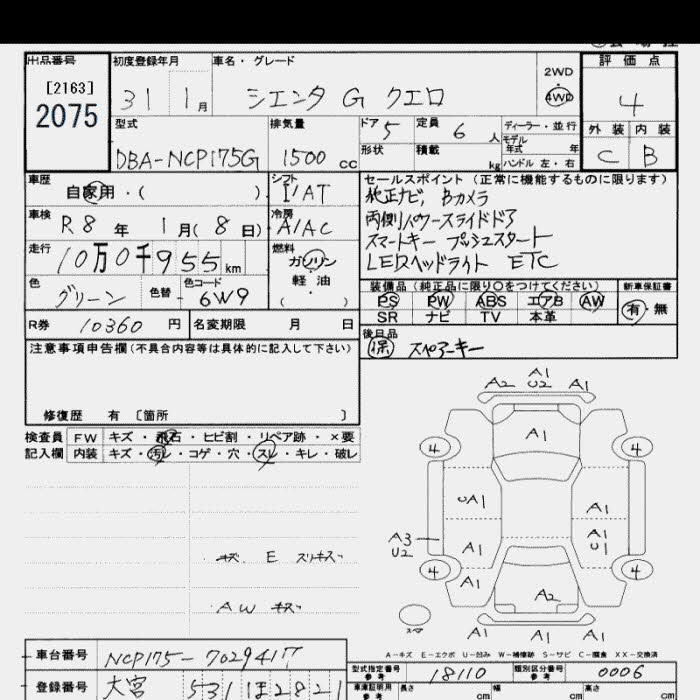 出品番号 初度登録年月 車名・グレード 評価点
[2163]
2075
31 1月 シエンタ G クエロ 2WD 4WD 4
型式 排気量 ドア 5 定員 6人 ディーラー・並行 外装 内装
DBA-NCP175G 1500cc 形状 積載 kg モデル年式 年 ハンドル 左・右 C B
車歴 自家用・( ) シフト I/AT セールスポイント (正常に機能するものに限ります)
純正ナビ, Bカメラ
車検 R8年 1月(8日) 冷房 A/AC 両側パワースライドドア
スマートキー プッシュスタート
走行 10万0千955km 燃料 ガソリン LEDヘッドライト ETC
軽油
( )
色 グリーン 色替 色コード 6W9 装備品(純正品に限り○をつけてください) 新車保証書
PS PW ABS エアB AW 有・無
SR ナビ TV 本革
R券 10360円 名変期限 月 日 後日品
保 スペアーキー
注意事項申告欄(不具合内容等は具体的に記入して下さい)
修復歴 有 〔箇所 〕
検査員 FW キズ・飛石・ヒビ割・リペア跡・×要
記入欄 内装 キズ・汚レ・コゲ・穴・スレ・キレ・破レ
A1
A2 U2 A1
A1
4 4
UA1 A1
A3
U2
A1 A1
U1
4 4
A1
A2
スペア
A1 A1 A1
キズ E スリキズ
AW キズ
A-キズ E-エクボ U-凹み W-補修跡 S-サビ C-腐食 XX-交換済
車台番号 NCP175-7029417 型式指定番号 参考 18110 類別区分番号 参考 0006
登録番号 大宮 531 ほ 2821 車庫証明用 参考 長さ cm 幅 cm 高さ cm